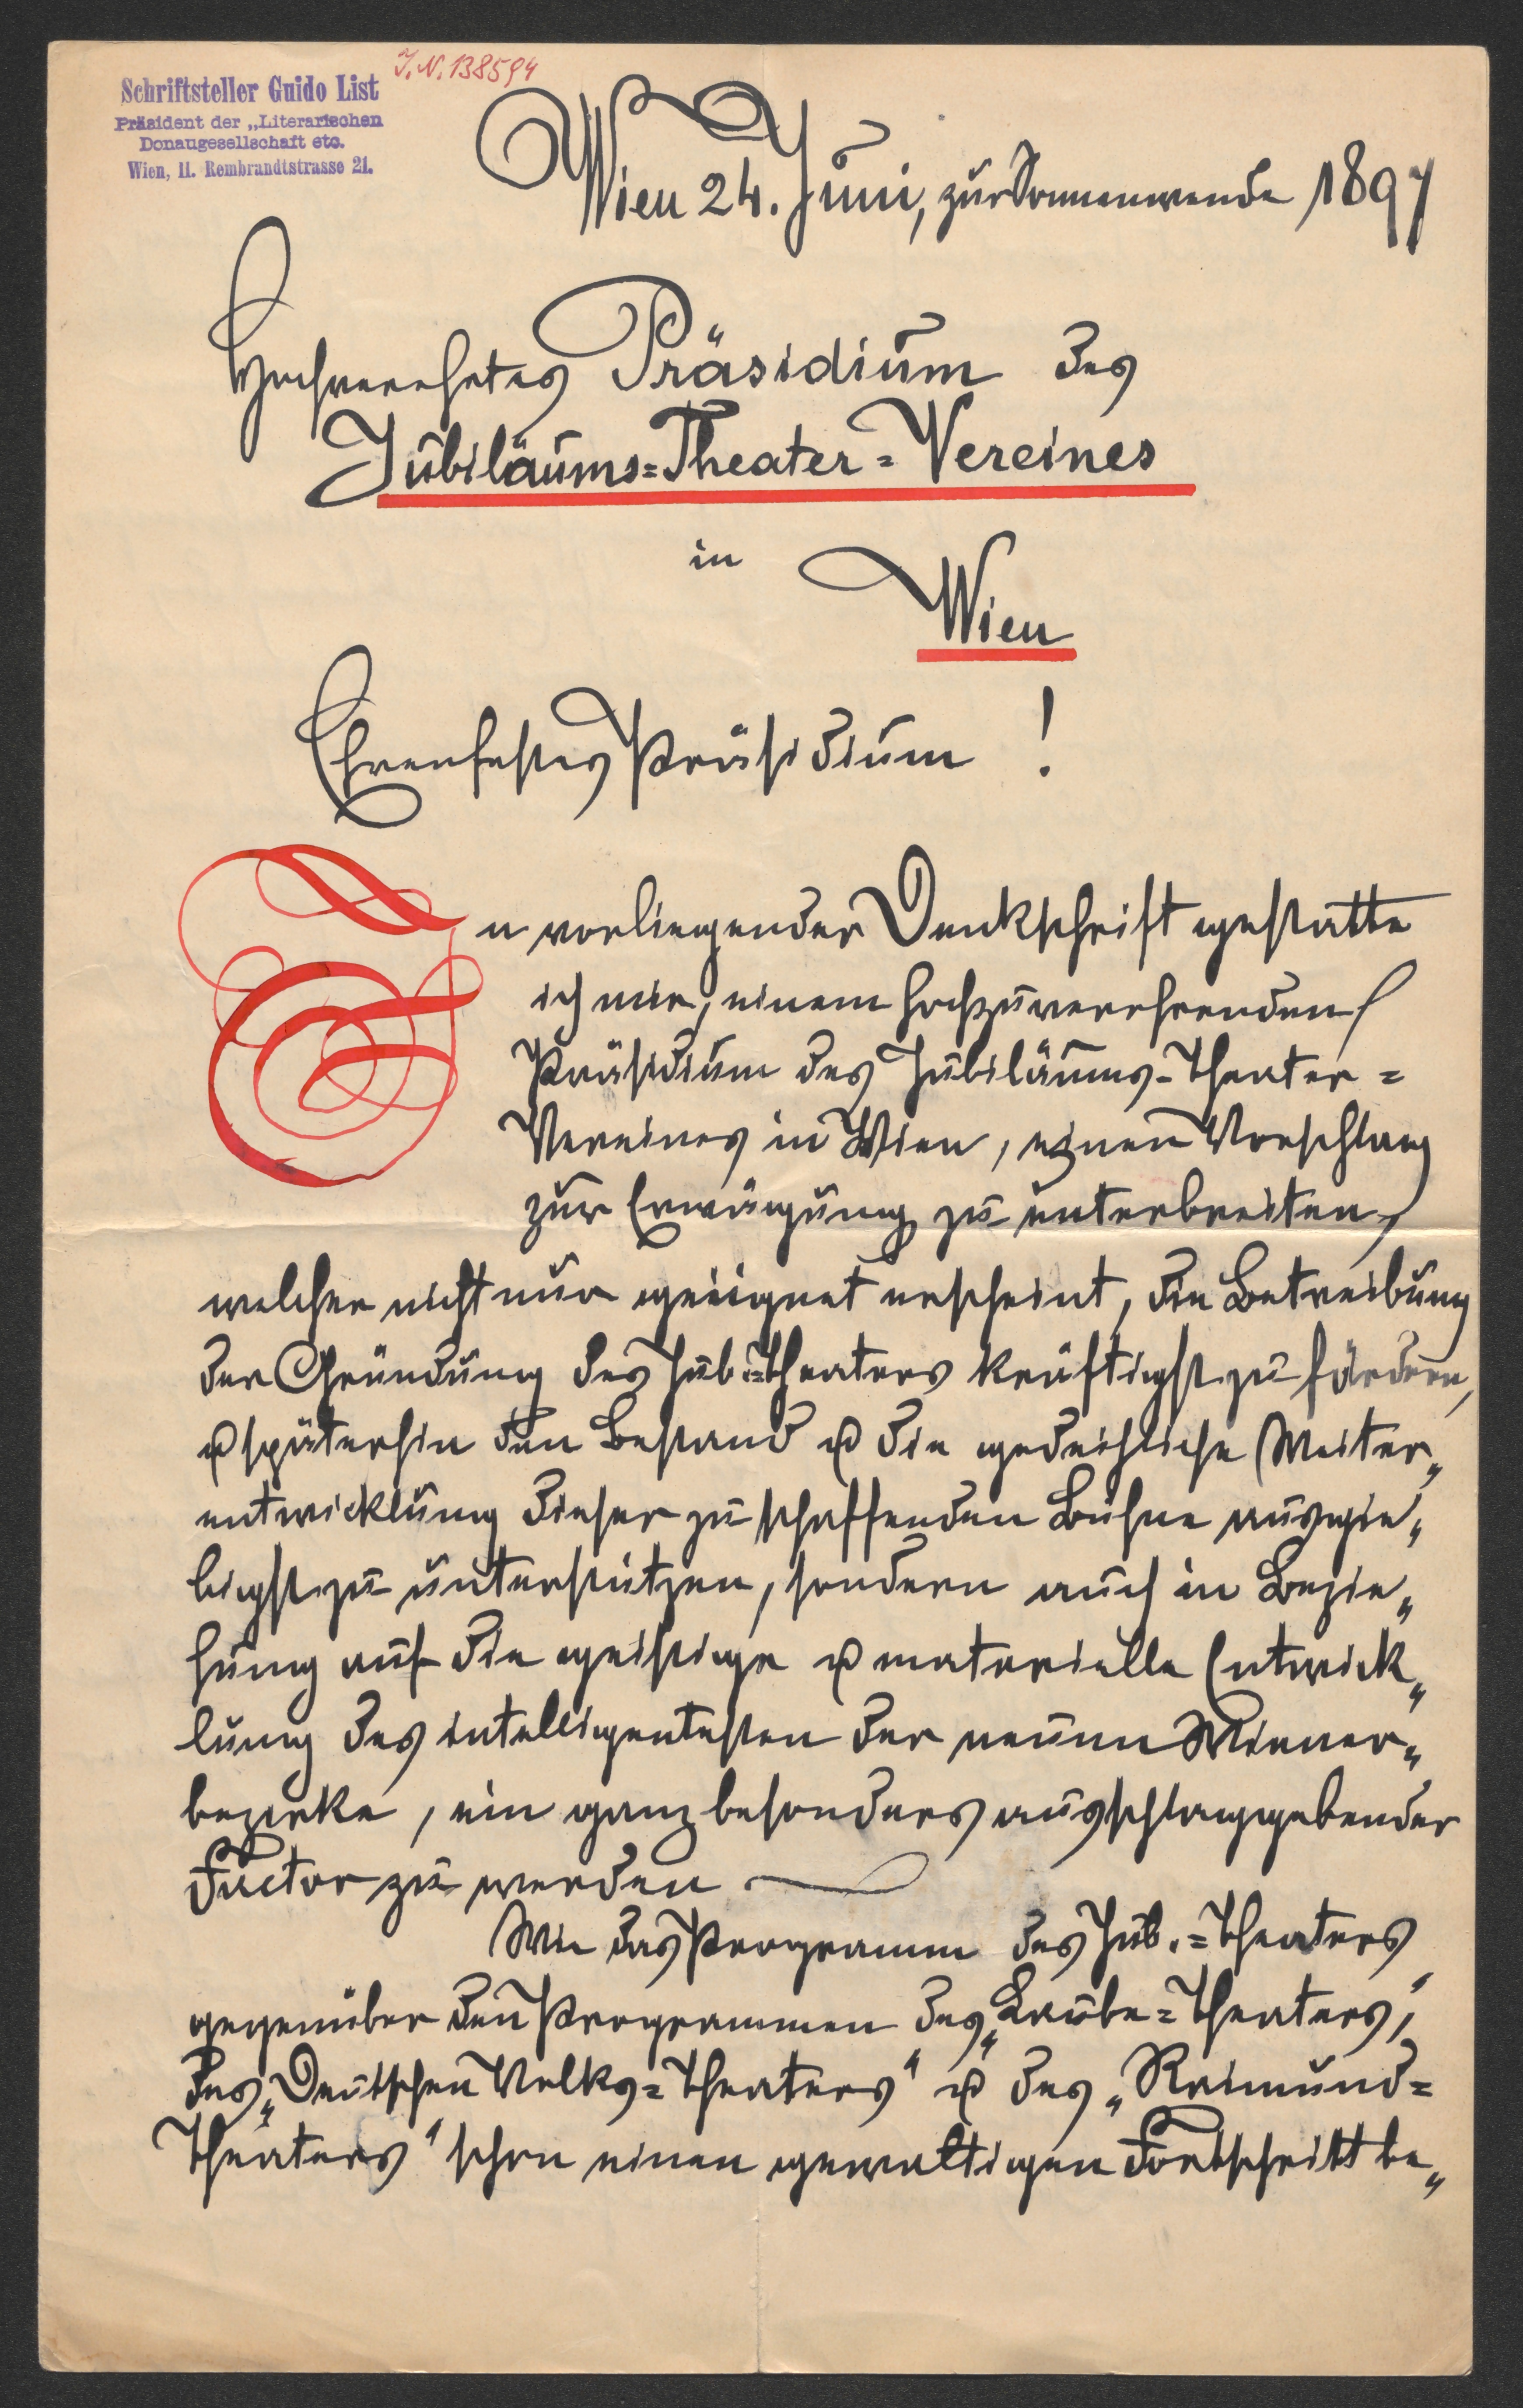 J. N. 138594
Schriftsteller Guido List
Präsident der „Literarischen
Donaugesellschaft etc.
Wien, II. Rembrandtstrasse 21.
Wien 24. Juni, zur Sonnenwende 1897
Hochverehrtes Präsidium des
Jubiläums=Theater=Vereines
in
Wien
Ehrenfestes Präsidium !
In vorliegender Denkschrift gestatte
ich mir, einem hochzuverehrenden
Präsidium des Jubiläums-Theater=
Vereines in Wien, einen Vorschlag
zur Erwägung zu unterbreiten,
welcher nicht nur geeignet erscheint, die Betreibung
der Gründung des Jub.=Theaters kräftigst zu fördern,
u späterhin den Bestand u die gedeihliche Weiter„
entwicklung dieser zu schaffenden Bühne ausgie„
bigst zu unterstützen, sondern auch in Bezie„
hung auf die geistige u materielle Entwick„
lung des intelligentesten der neuen Wiener„
bezirke, ein ganz besonders ausschlaggebender
Factor zu werden.
Wie das Programm des Jub.=Theaters
gegenüber den Programmen des „Laube=Theaters",
des „Deutschen Volks=Theaters" u des „Raimund=
Theaters" schon einen gewaltigen Fortschritt be„